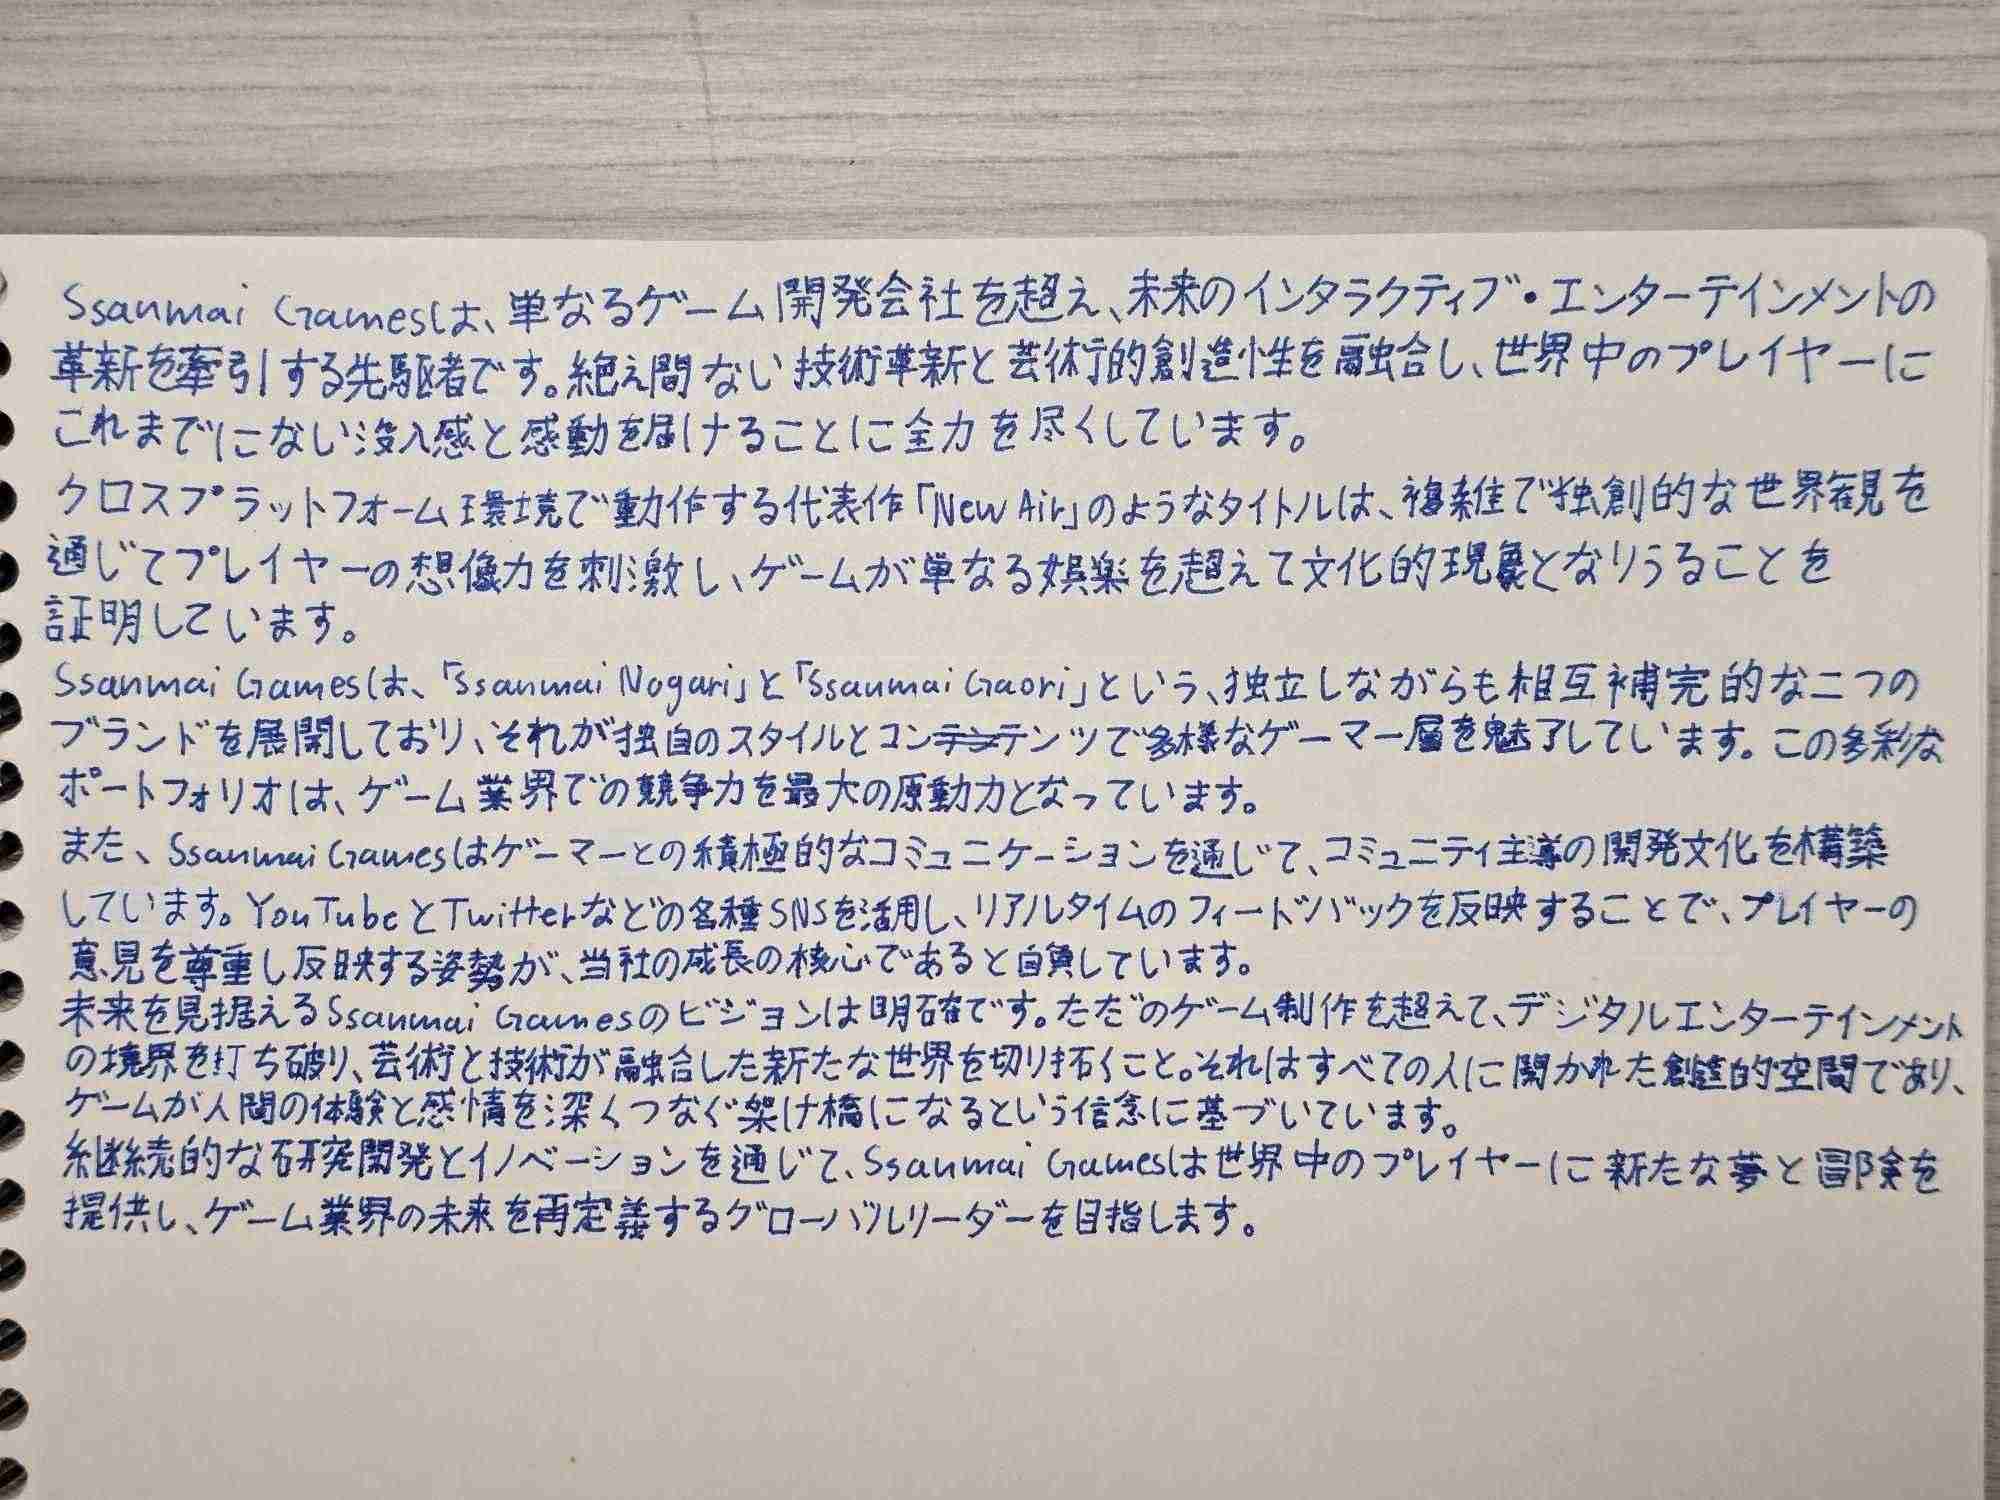 Ssanmai Gamesは、単なるゲーム開発会社を超え、未来のインタラクティブ・エンターテインメントの
革新を牽引する先駆者です。絶え間ない技術革新と芸術的創造性を融合し、世界中のプレイヤーに
これまでにない没入感と感動を届けることに全力を尽くしています。
クロスプラットフォーム環境で動作する代表作「New Air」のようなタイトルは、複雑で独創的な世界観を
通じてプレイヤーの想像力を刺激し、ゲームが単なる娯楽を超えて文化的現象となりうることを
証明しています。
Ssanmai Gamesは、「Ssanmai Nogari」と「Ssanmai Gaori」という、独立しながらも相互補完的な二つの
ブランドを展開しており、それが独自のスタイルとコンテンツで多様なゲーマー層を魅了しています。この多彩な
ポートフォリオは、ゲーム業界での競争力を最大の原動力となっています。
また、Ssanmai Gamesはゲーマーとの積極的なコミュニケーションを通じて、コミュニティ主導の開発文化を構築
しています。YouTubeとTwitterなどの各種SNSを活用し、リアルタイムのフィードバックを反映することで、プレイヤーの
意見を尊重し反映する姿勢が、当社の成長の核心であると自負しています。
未来を見据えるSsanmai Gamesのビジョンは明確です。ただのゲーム制作を超えて、デジタルエンターテインメント
の境界を打ち破り、芸術と技術が融合した新たな世界を切り拓くこと。それはすべての人に開かれた創造的空間であり、
ゲームが人間の体験と感情を深くつなぐ架け橋になるという信念に基づいています。
継続的な研究開発とイノベーションを通じて、Ssanmai Gamesは世界中のプレイヤーに新たな夢と冒険を
提供し、ゲーム業界の未来を再定義するグローバルリーダーを目指します。